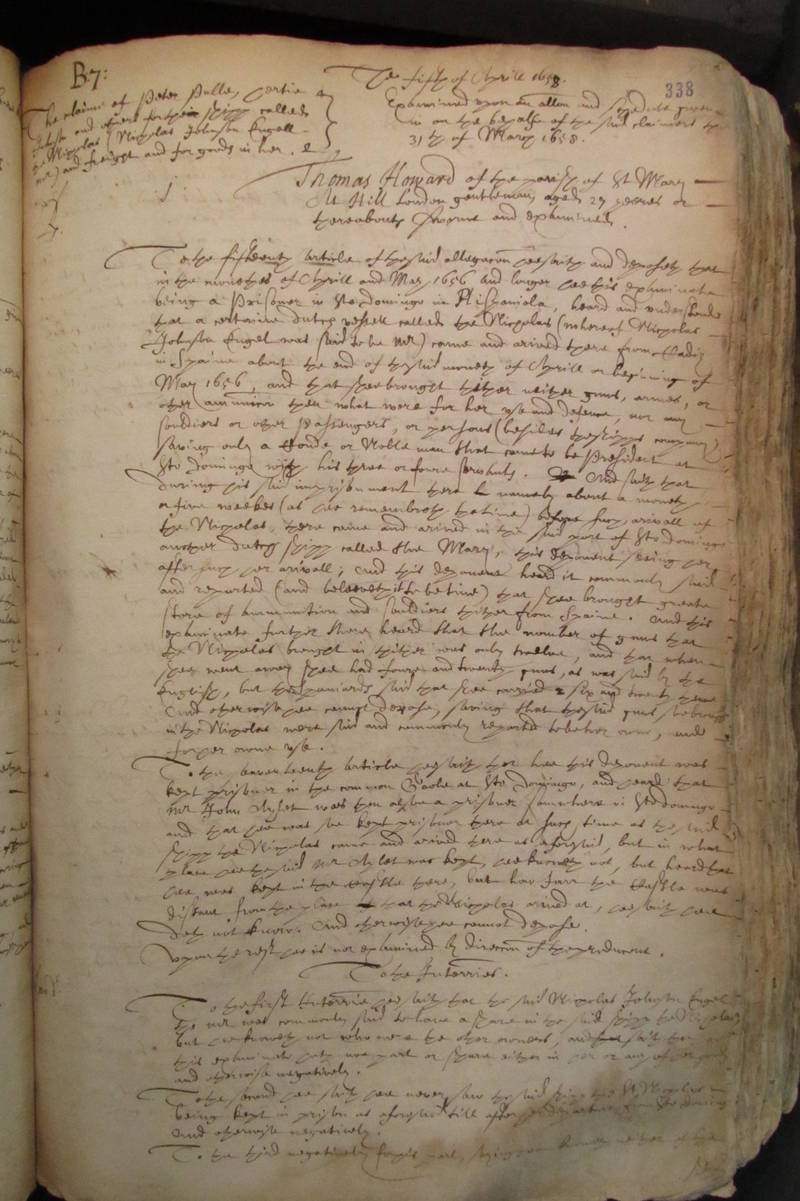 B7:
The fifth of Aprill 1658.
338
The claime of Peter Pulley
and others for the shipp called
the Nicholas (Nicholas Johnson Engell
mr) and freight and for goods in her.
Examined upon an allon and schedule given
in on the behalfe of the said claimers the
31th of March 1658.
1.
Thomas Howard of the parish of St Mary
At Hill London gentleman aged 27 yeeres or
thereabouts sworne and examined.
To the fifteenth article of the said allegaon hee saith and deposeth that
in the moneths of Aprill and May 1656 and longer hee this examinate
being a Prisoner in Sto Domingo in Hispaniola, heard and understoode
that a certaine dutch vessell called the Nicholas (whereof Nicholas
Johnson Engel was said to be mr) came and arived there from Cadiz
in Spaine about the end of the said moneth of Aprill or beginning of
May 1656, and that shee brought thither neither guns, armes, or
other amunition then what were for her use and defence, nor any
souldiers or other Passengers, or persons (besides the shipps company)
saving only a Conde or Noble man that came to be President at
Sto Domingo with his three or foure servants. And saith that
during his said imprisonment there namely about a moneth
or five weekes (as hee remembreth the time) before such arivall of
the Nicholas, there came and arived in the said port of Sto Domingo
another dutch shipp called the Mary, this deponent seeing her
after such her arivall; And this deponent heard it commonly said
and reported (and beleeveth it to be true) that shee brought greate
store of ammunition and souldiers thither from Spaine. And this
examinate further there heard that the number of guns that
the Nicholas brought in thither was only twelve, and that when
shee went away shee had foure and twenty guns, as was said by the
English, but the Spaniards said that shee carried six and twenty thence
And otherwise hee cannot depose, saving that the said guns shee brought
in the Nicholas were said and commonly reported to be her owne, and
for her owne use.
To the seaventeenth article hee saith that hee this deponent was
kept prisoner in the common Gaole at Sto Domingo, and heard that
mr John was then alsoe a prisoner somewhere in Sto Domingo
and that hee was soe kept prisoner there at such time as the said
shipp the Nicholas came and arived there as aforesaid, but in what
place hee the said mr was kept, hee knoweth not, but heard that
hee was kept in the Castle there, but how farr the Castle was
distant from the place that the Nicholas arived at, hee saith hee
doth not know. And otherwise hee cannot depose.
Upon the rest hee is not examined by direction of the producent.
To the Interries.
To the first Interrie hee saith that the said Nicholas Johnson Engel
the mr was commonly said to have a share in the said shipp the Nicholas
but hee knoweth not who were the other owners, and saith that
this examinate hath noe part or share either in her or any of her
and otherwise negatively.
To the second hee saith hee never saw the said shipp the Nicholas
being kept in prison as aforesaid till after her departure from Sto Domingo
And otherwise negatively.
To the third negatively for his part,